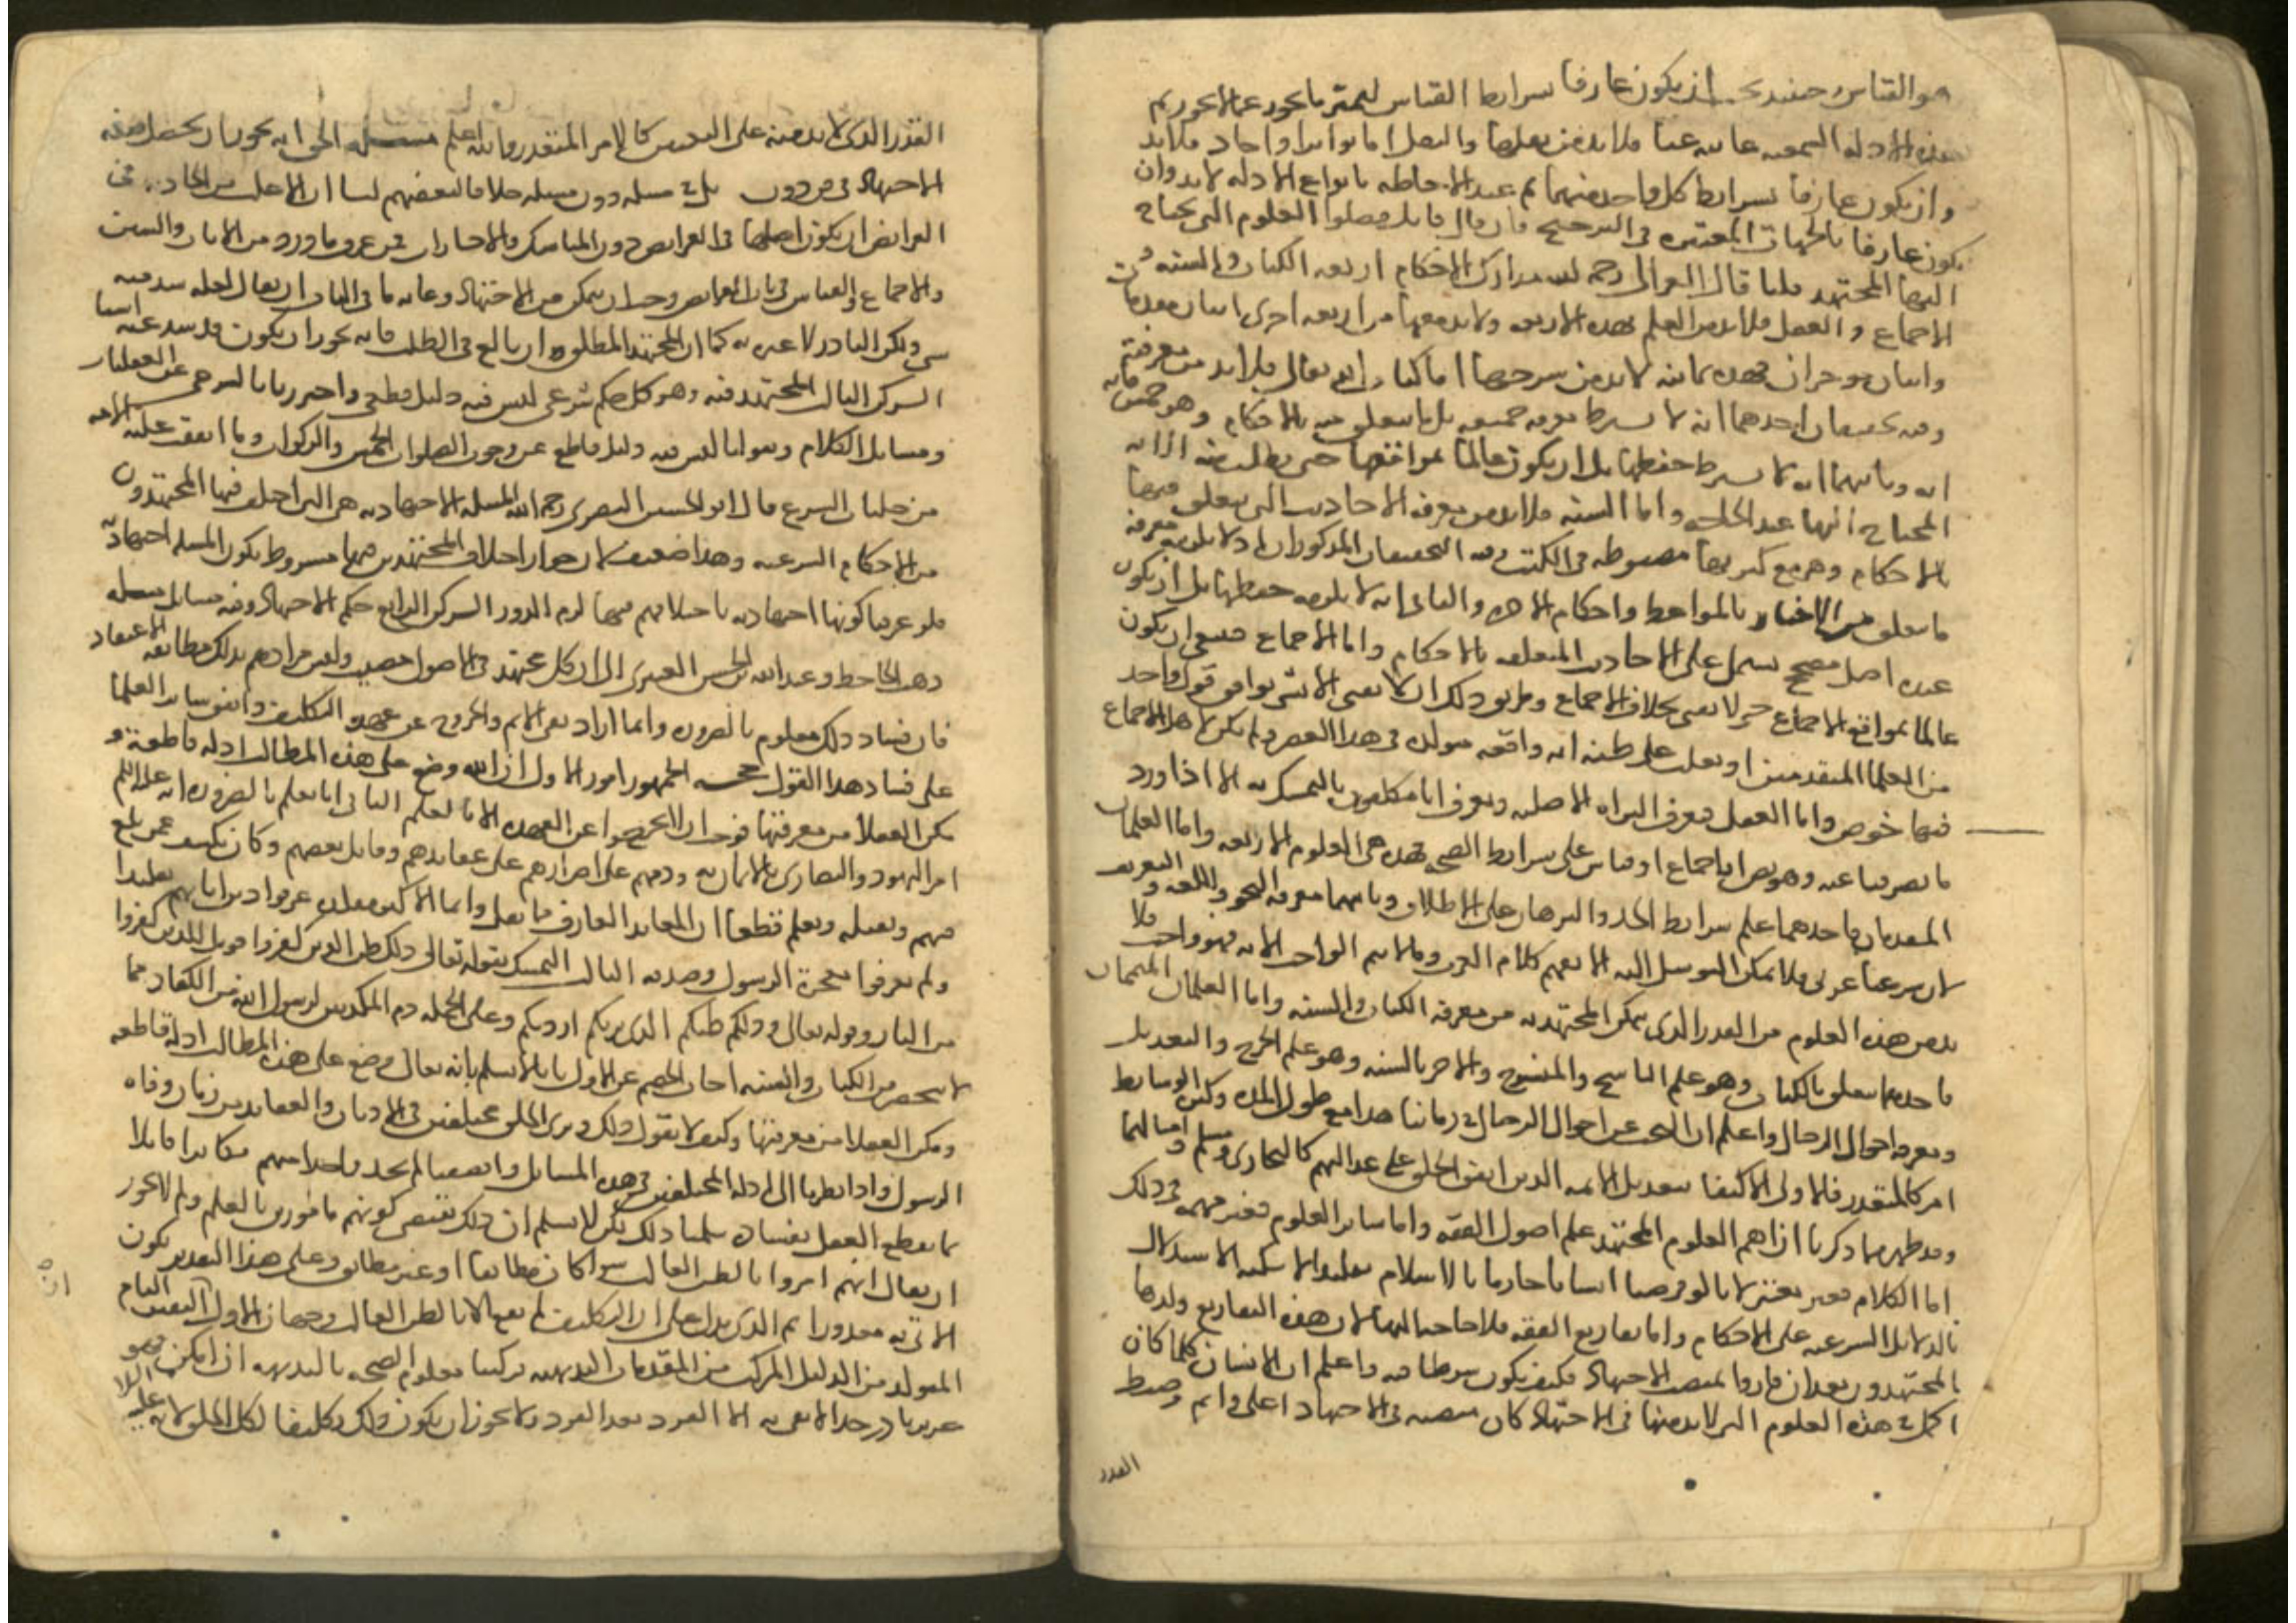 هو القياس وحينئذ يجب ان يكون عارفا بشرايط القياس ليميز ما يجوز عما لا يجوز ثم
هذه الادلة السمعية غايبة عنا فلا بد من نقلها والنقل اما تواتر او احاد فلا بد
وان يكون عارفا بشرايط كل واحد منهما ثم عند الاحاطة بانواع الادلة لا بد وان
يكون عارفا بالجهات المعتبرة في الترجيح فان قال قايل فصلوا العلوم التي يحتاج
اليها المجتهد قلنا قال الغزالي رحمه الله مدارك الاحكام اربعة الكتاب والسنة و
الاجماع والعقل فلا بد من العلم بهذه الاربعة ولا بد معها من اربعة اخرى اثنان مقدمان
واثنان موخران فهذه ثمانية لا بد من شرحها اما كتاب الله تعالى فلا بد من معرفته
وفيه تخفيفان احدهما انه لا يشترط معرفة جميعه بل ما يتعلق منه بالاحكام وهو خمس ماية
اية وثانيهما انه لا يشترط حفظها بل ان يكون عالما بمواقعها حتى يطلب منه الاية
المحتاج اليها عند الحاجة واما السنة فلا بد من معرفة الاحاديث التي يتعلق منها
بالاحكام وهي مع كثرتها مضبوطة في الكتب وفيه التخفيفان المذكوران اذ لا يلزمه معرفة
ما يتعلق من الاخبار بالمواعظ واحكام الاخرة والثاني انه لا يلزمه حفظها بل ان يكون
عنده اصل مصحح يشمل على الاحاديث المتعلقة بالاحكام واما الاجماع فينبغي ان يكون
عالما بمواقع الاجماع حتى لا يفتي بخلاف الاجماع وطريق ذلك ان لا يفتي الا بشي يوافق قول واحد
من العلما المتقدمين او يغلب على ظنه انه واقعة متولدة في هذا العصر ولم يكن لاهل الاجماع
فيها خوض واما العقل فيعرف البراءة الاصلية ويعرف انا مكلفون بالتمسك به الا اذا ورد
ما يصرفنا عنه وهو نص او اجماع او قياس على شرايط الصحة فهذه هي العلوم الاربعة واما العلمان
المقدمان فاحدهما علم شرايط الحد والبرهان على الاطلاق وثانيهما معرفة النحو واللغة والتصريف
لان شرعنا عربي فلا يمكن التوسل اليه الا بفهم كلام العرب وما لا يتم الواجب الا به فهو واجب ولا
بد من هذه العلوم من القدر الذي يمكن المجتهد به من معرفة الكتاب والسنة واما العلمان المتممان
فاحدهما يتعلق بالكتاب وهو علم الناسخ والمنسوخ والاخر بالسنة وهو علم الجرح والتعديل
ومعرفة احوال الرجال واعلم ان البحث عن احوال الرجال في زماننا هذا مع طول المدة وكثرة الوسايط
امر كالمتعذر فالاولى الاكتفا بتعديل الايمة الذين اتفق الخلق على عدالتهم كالبخاري ومسلم وامثالهما
وقد ظهر مما ذكرنا ان اهم العلوم للمجتهد علم اصول الفقه واما ساير العلوم فغير مهمة في ذلك
اما الكلام فغير معتبر لانا لو فرضنا انسانا جازما بالاسلام تقليدا لامكنه الاستدلال
بالدلايل الشرعية على الاحكام واما تفاريع الفقه فلا حاجة اليها لان هذه التفاريع ولدها
المجتهدون بعد ان فازوا بمنصب الاجتهاد فكيف يكون شرطا فيه واعلم ان الانسان كلما كان
اكمل في هذه العلوم التي لا بد منها في الاجتهاد كان منصبه في الاجتهاد اعلى واتم وضبط
القدر
القدر الذي لا بد منه على التعيين كالامر المتعذر والله اعلم مسئله الحق انه يجوز ان يحصل صفة
الاجتهاد في فن دون بل في مسئلة دون مسئلة خلافا لبعضهم لنا ان الاغلب من الحادثة في
الفرايض ان يكون اصلها في الفرايض دون المناسك والاجارات فمن عرف ما ورد من الايات والسنن
والاجماع والقياس في باب الفرايض وجب ان يتمكن من الاجتهاد وغاية ما في الباب ان يقال لعله شذ منه
شي ولكن النادر لا عبرة به كما ان المجتهد المطلق وان بالغ في الطلب فانه يجوز ان يكون قد شذ عنه اشيا
الركن الثالث المجتهد فيه وهو كل حكم شرعي ليس فيه دليل قطعي واحترزنا بالشرعي عن العقليات
ومسايل الكلام وبقولنا ليس فيه دليل قاطع عن وجوب الصلوات الخمس والزكوات وما اتفقت عليه الامة
من جليات الشرع قال ابو الحسين البصري رحمه الله المسئلة الاجتهادية هي التي اختلف فيها المجتهدون
من الاحكام الشرعية وهذا ضعيف لان جواز اختلاف المجتهدين فيها مشروط بكون المسئلة اجتهادية
فلو عرفنا كونها اجتهادية باختلافهم فيها لزم الدور الركن الرابع حكم الاجتهاد وفيه مسايل مسئله
ذهب الجاحظ وعبد الله بن الحسن العنبري الى ان كل مجتهد في الاصول مصيب وليس مرادهم بذلك مطابقة الاعتقاد
فان فساد ذلك معلوم بالضرورة وانما اراد نفي الاثم والخروج عن عهدة التكليف واتفق ساير العلما
على فساد هذا القول حجة الجمهور امور الاول ان الله وضع على هذه المطالب ادلة قاطعة و
مكن العقلا من معرفتها فوجب ان لا يخرجوا عن العهدة الا بالعلم الثاني انا نعلم بالضرورة انه عليه السلم
امر اليهود والنصارى بالايمان به وذمهم على اصرارهم على عقايدهم وقاتل بعضهم وكان يكشف عمن بلغ
منهم ويقتله ونعلم قطعا ان المعاند العارف مما يقل وانما الاكثر مقلدة عرفوا دين ابايهم تقليدا
ولم يعرفوا معجزة الرسول وصدقه الثالث التمسك بقوله تعالى ذلك ظن الذين كفروا فويل للذين كفروا
من النار وقوله تعالى وذلكم ظنكم الذي ظننتم بربكم ارديكم وعلى الجملة ذم المكذبين لرسول الله من الكفار مما
لا ينحصر من الكتاب والسنة اجاب الخصم عن الاول بانا لا نسلم بانه تعالى وضع على هذه المطالب ادلة قاطعة
ومكن العقلا من معرفتها وكيف لا نقول ذلك ونرى الخلق مختلفين في الاديان والعقايد من زمان وفاة
الرسول واذا نظرنا الى ادلة المختلفين في هذه المسايل وانصفنا لم نجد واحدا منهم مكابرا قايلا
ما يقطع العقل بفساده سلمنا ذلك لكن لا نسلم ان ذلك يقتضي كونهم مامورين بالعلم ولم لا يجوز
ان يقال انهم امروا بالظن الغالب سوا كان مطابقا او غير مطابق وعلى هذا التقدير يكون
الاتي به معذورا ثم الذي يدل على ان التكليف لم يقع الا بالظن الغالب وجهان الاول اليقين التام
المتولد من الدليل المركب من المقدمات البديهية تركيبا معلوم الصحة بالبديهة ان امكن فهو
عزيز نادر جدا لا يفي به الا الفرد بعد الفرد ولا يجوز ان يكون ذلك تكليفا لكل الخلق لانه عليه